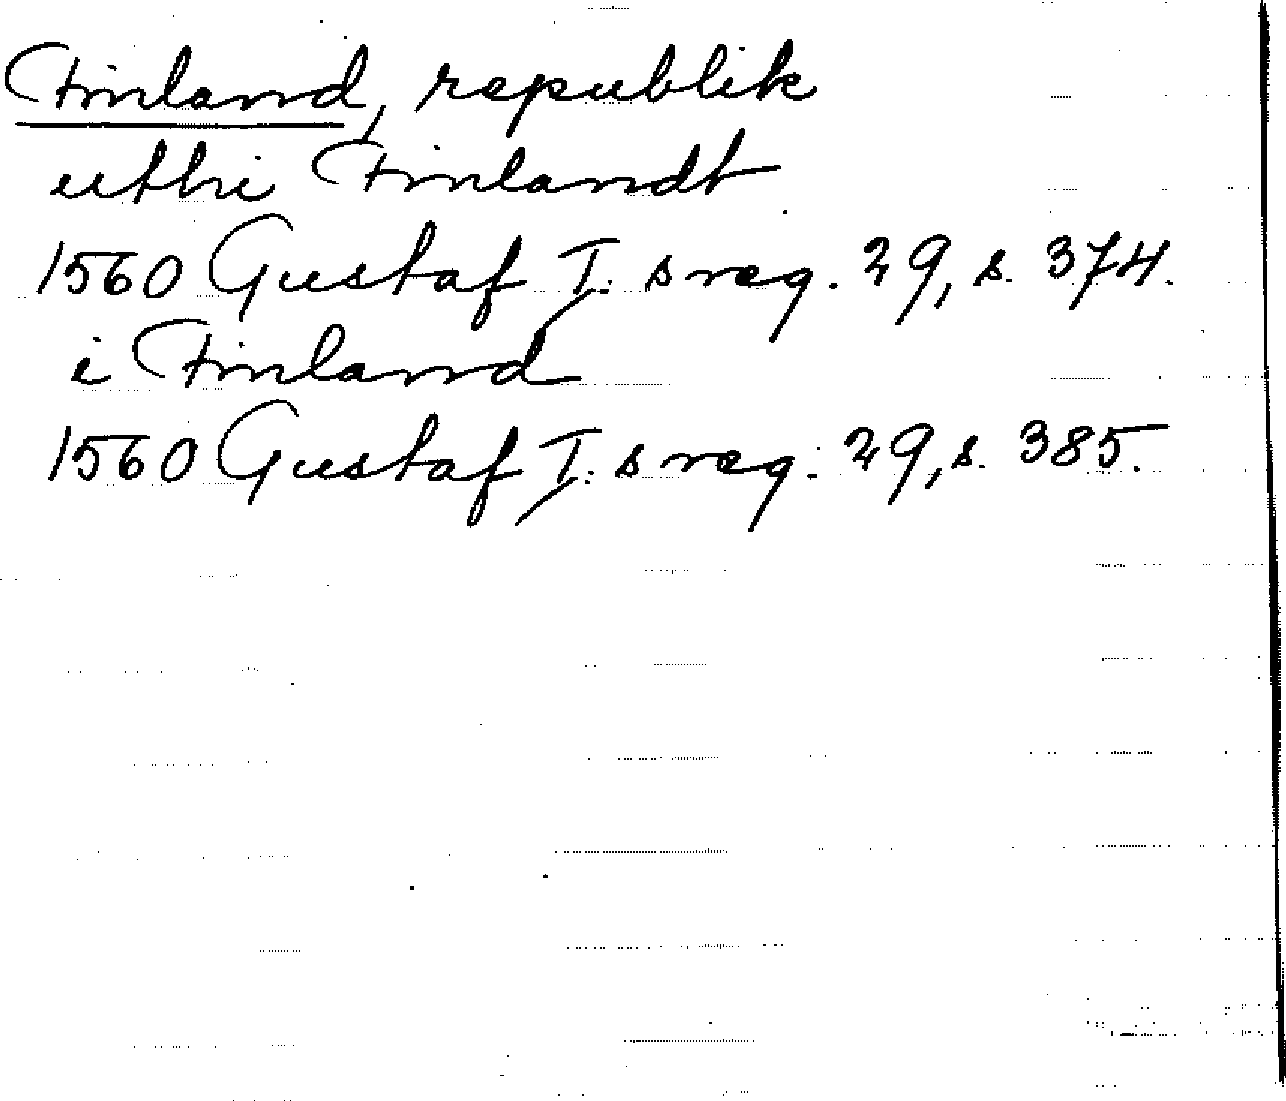 Finland, republik
uthi Finlandt
1560 Gustaf I:s reg. 29, s. 374.
i Finland
1560 Gustaf I:s reg. 29, s. 385.